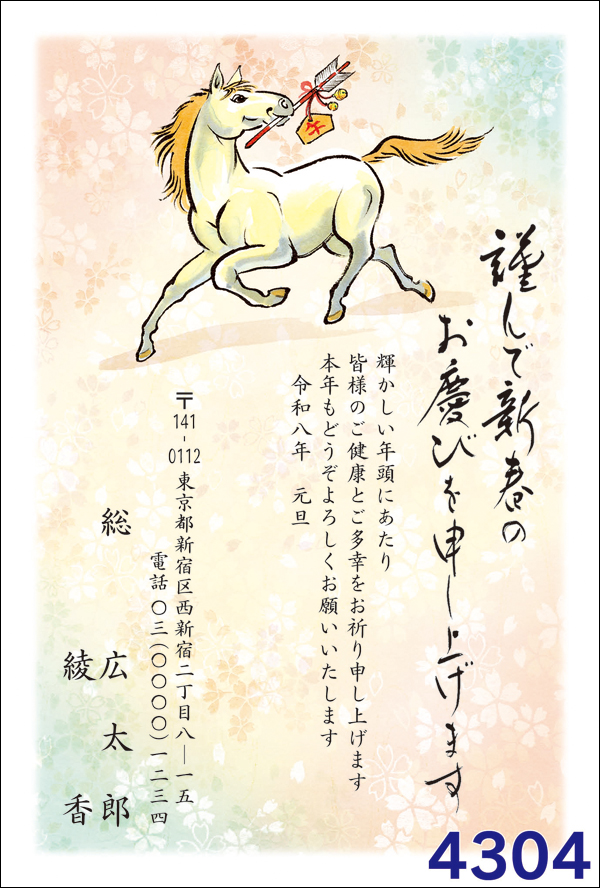 午
謹んで新春の
お慶びを申し上げます
輝かしい年頭にあたり
皆様のご健康とご多幸をお祈り申し上げます
本年もどうぞよろしくお願いいたします
令和八年　元旦
〒141-0112 東京都新宿区西新宿二丁目八―一五
電話 〇三(〇〇〇〇)一二三四
総　広太郎
綾香
4304